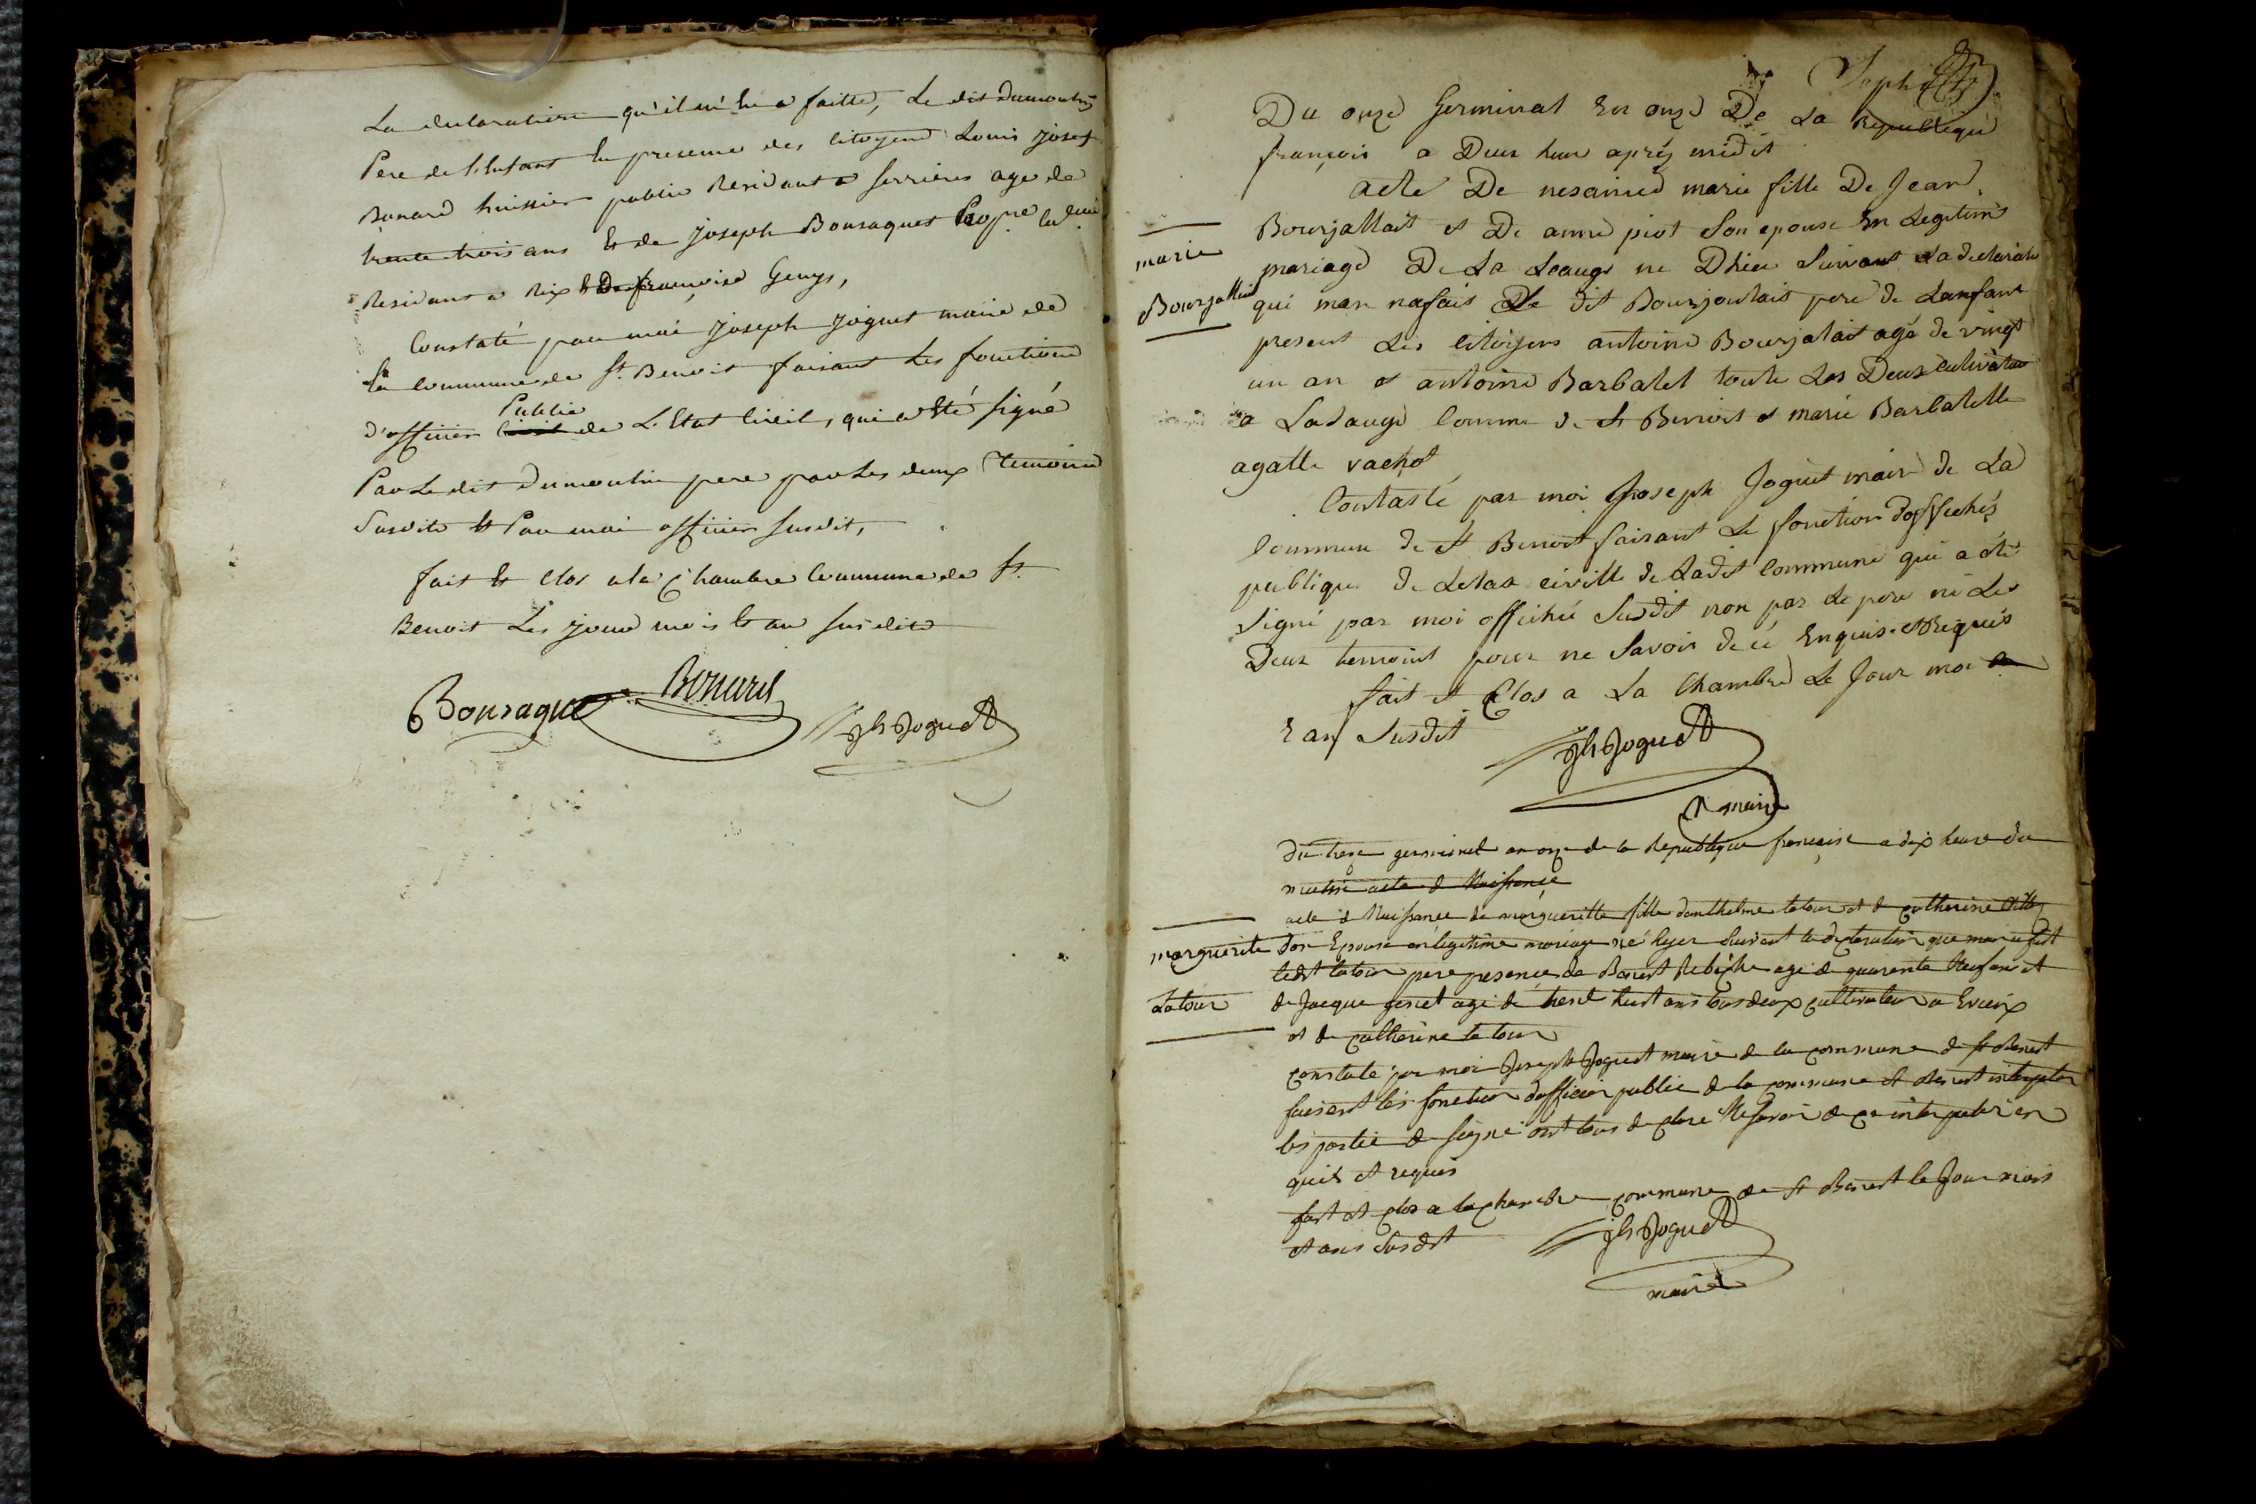 La declaration qu'il m'En a faitte, Le dit dumoulin
Pere de l'Enfant En presence des Citoyens Louis josep
Bonard huissier public Residant a serrieres age de
trente trois ans Et de joseph Bonsaquet Propre la
Residant a Rix Et De francoise Genys,
Constaté par moi joseph joguet maire de
la Commune de St. Benoit faisant Les fonctions
Public
d'officier Civil de L'Etat Civil, qui a Eté signé
Par Le dit Dumoulin pere par Les deux Temoins
Susdits Et Par moi officier susdit,
fait Et Clos a la Chambre Commune de St.
Benoit Les jour mois Et an susdits
Bonsaquet Bonard
jh Joguet
Joseph
Du onze Germinal En onze De La Republique
françois a Deux heur aprés midit
acte De nesaince marie fille De Jean
Bourjallait et De anne piot son epouse En Legitime
marie
mariage De La Leauge ne Dhier Suivant La declaration
Bourjallait
qui man nafais Le dit Bourjoulais pere de Lanfant
present Les Citoijens antoine Bourjalait agé de vingt
un an et antoine Barbalet toute Les Deux cultivateur
a Ladauge Comme de St Benoit et marie Barbalette
agatte vachot
Contasté par moi Joseph Joguet maire de La
Commune de St Benoit faisant Le fonction doffichés
publique de Letax civille de Ladit Commune qui a été
Signé par moi offiché Susdit non par Le pere ni Les
Deux temoint pour ne Savoir de cé Enquis et Requis
fait et Clos a La Chambre Le Jour moi
E an Susdit
jh Joguet
maire
du treze germinal an onze de la Republique francaise a dix heure du
matin acte de Naissance
acte de Naissance de margueritte fille danthelme latour et de catherine
marguerite
son Epouse en legitime mariage né hyer suivant la declaration que man a fait
ledit latour pere presence de Benoit Rebiche agé de quarante Neuf ans et
Latour
de Jacque genet agé de trent huit ans tous deux cultivateur a Evieux
et de catherine latour
constaté par moi Joseph Joguet maire de la commune de st Benoit
faisant les fonction dofficier public de la commune st Benoit interpeler
les partie de signé ont tous de clare Ne savoir de ce interpeler en
quis et requis
fait et clos a la chambre commune de st Benoit le Jour mois
et ans Susdit
jh Joguet
maire